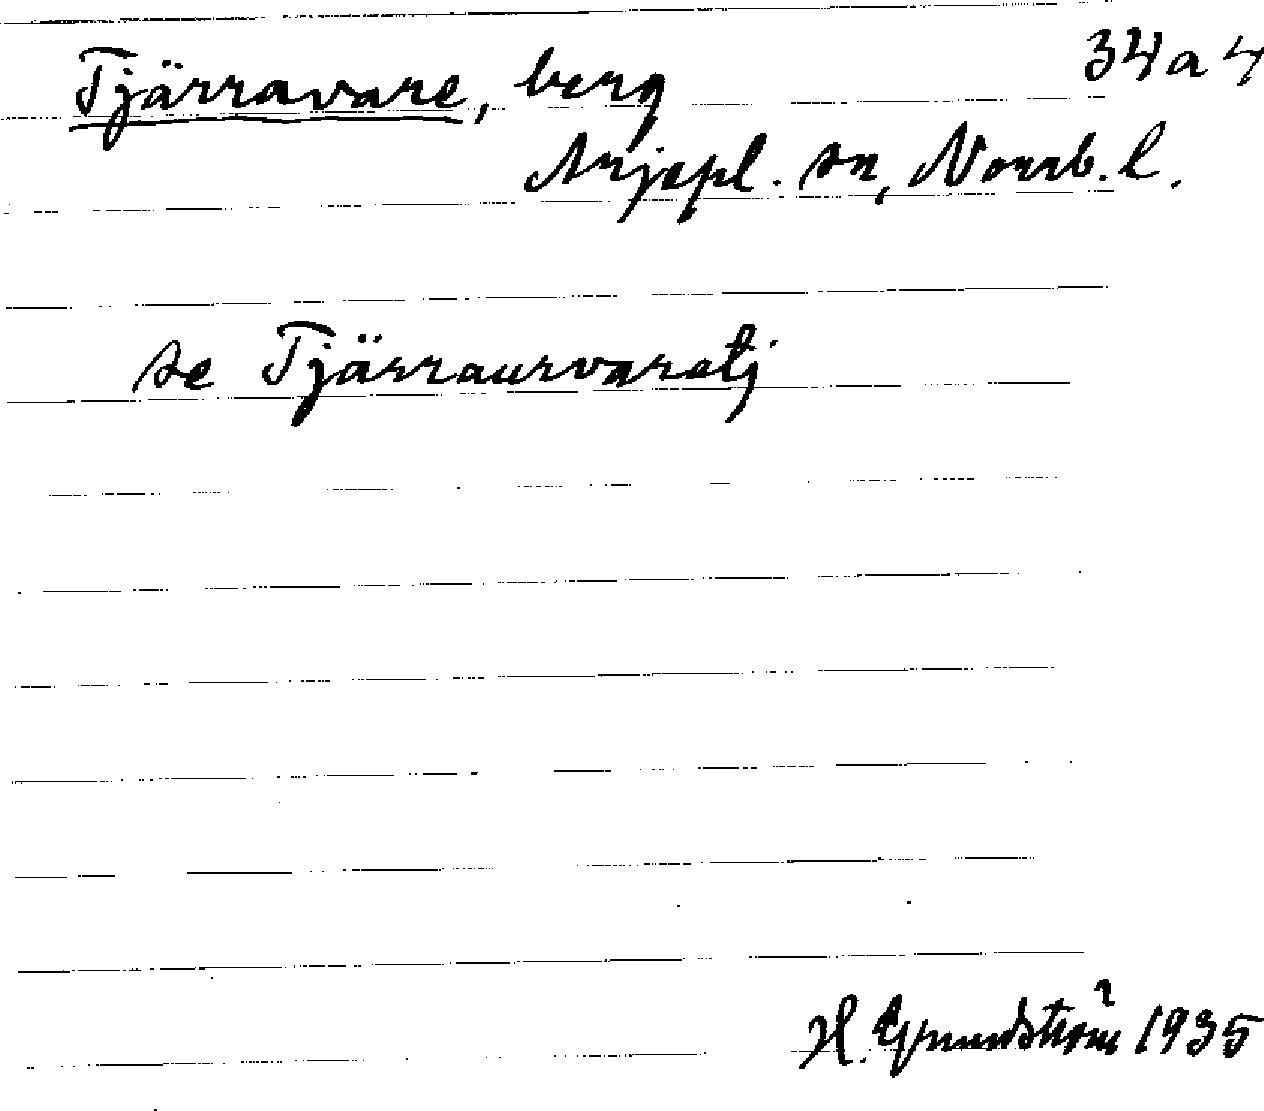 Tjärravare, berg 34a4
Arjepl. sn, Norrb. l.
se Tjärraurvaratj
H. Grundström 1935